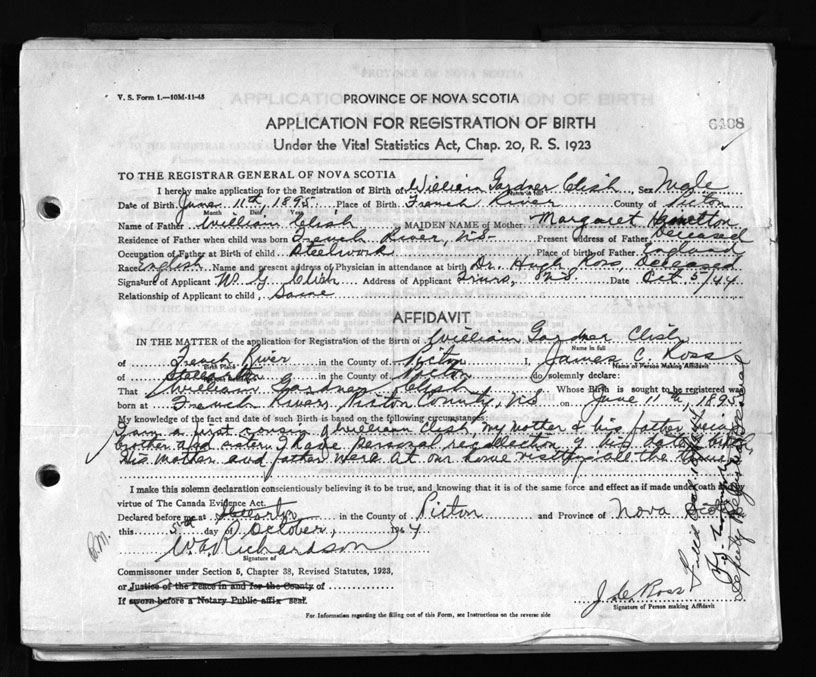 V. S. Form 1.—10M-11-43
PROVINCE OF NOVA SCOTIA
6408
APPLICATION FOR REGISTRATION OF BIRTH
Under the Vital Statistics Act, Chap. 20, R. S. 1923
TO THE REGISTRAR GENERAL OF NOVA SCOTIA
I hereby make application for the Registration of Birth of William Gardner Clish, Sex Male
Name in full
Date of Birth June 11th, 1895 Place of Birth French River County of Picton
Month Day Year
Name of Father William Clish MAIDEN NAME of Mother Margaret
Residence of Father when child was born French River, N.S. Present address of Father Deceased
Occupation of Father at Birth of child Steelwork Place of birth of Father England
Race English Name and present address of Physician in attendance at birth Dr. Hugh Ross, Deceased
Signature of Applicant W. G Clish Address of Applicant Truro, N.S. Date Oct 5/44
Relationship of Applicant to child, Same
AFFIDAVIT
IN THE MATTER of the application for Registration of the Birth of William Gardner Clish
Name in full
of French River in the County of Picton I, James C. Ross
Birth Place Name of Person Making Affidavit
of in the County of Picton do solemnly declare:
That William Gardner Clish Whose Birth is sought to be registered was
born at French River, Picton County, N.S on June 11th, 1895
My knowledge of the fact and date of such Birth is based on the following circumstances:
I am a first cousin of William Clish, my mother & his father being
brother and sister. I have personal recollection of his birth
His mother and father were at our home visiting all the time
I make this solemn declaration conscientiously believing it to be true, and knowing that it is of the same force and effect as if made under oath by
virtue of The Canada Evidence Act.
Declared before me at in the County of Picton and Province of Nova Scotia
this 5th day of October, 1944
W. Richardson
Signature of
Commissioner under Section 5, Chapter 38, Revised Statutes, 1923,
or Justice of the Peace in and for the County of
If sworn before a Notary Public affix seal.
J. C. Ross
Signature of Person making Affidavit
For Information regarding the filling out of this Form, see Instructions on the reverse side